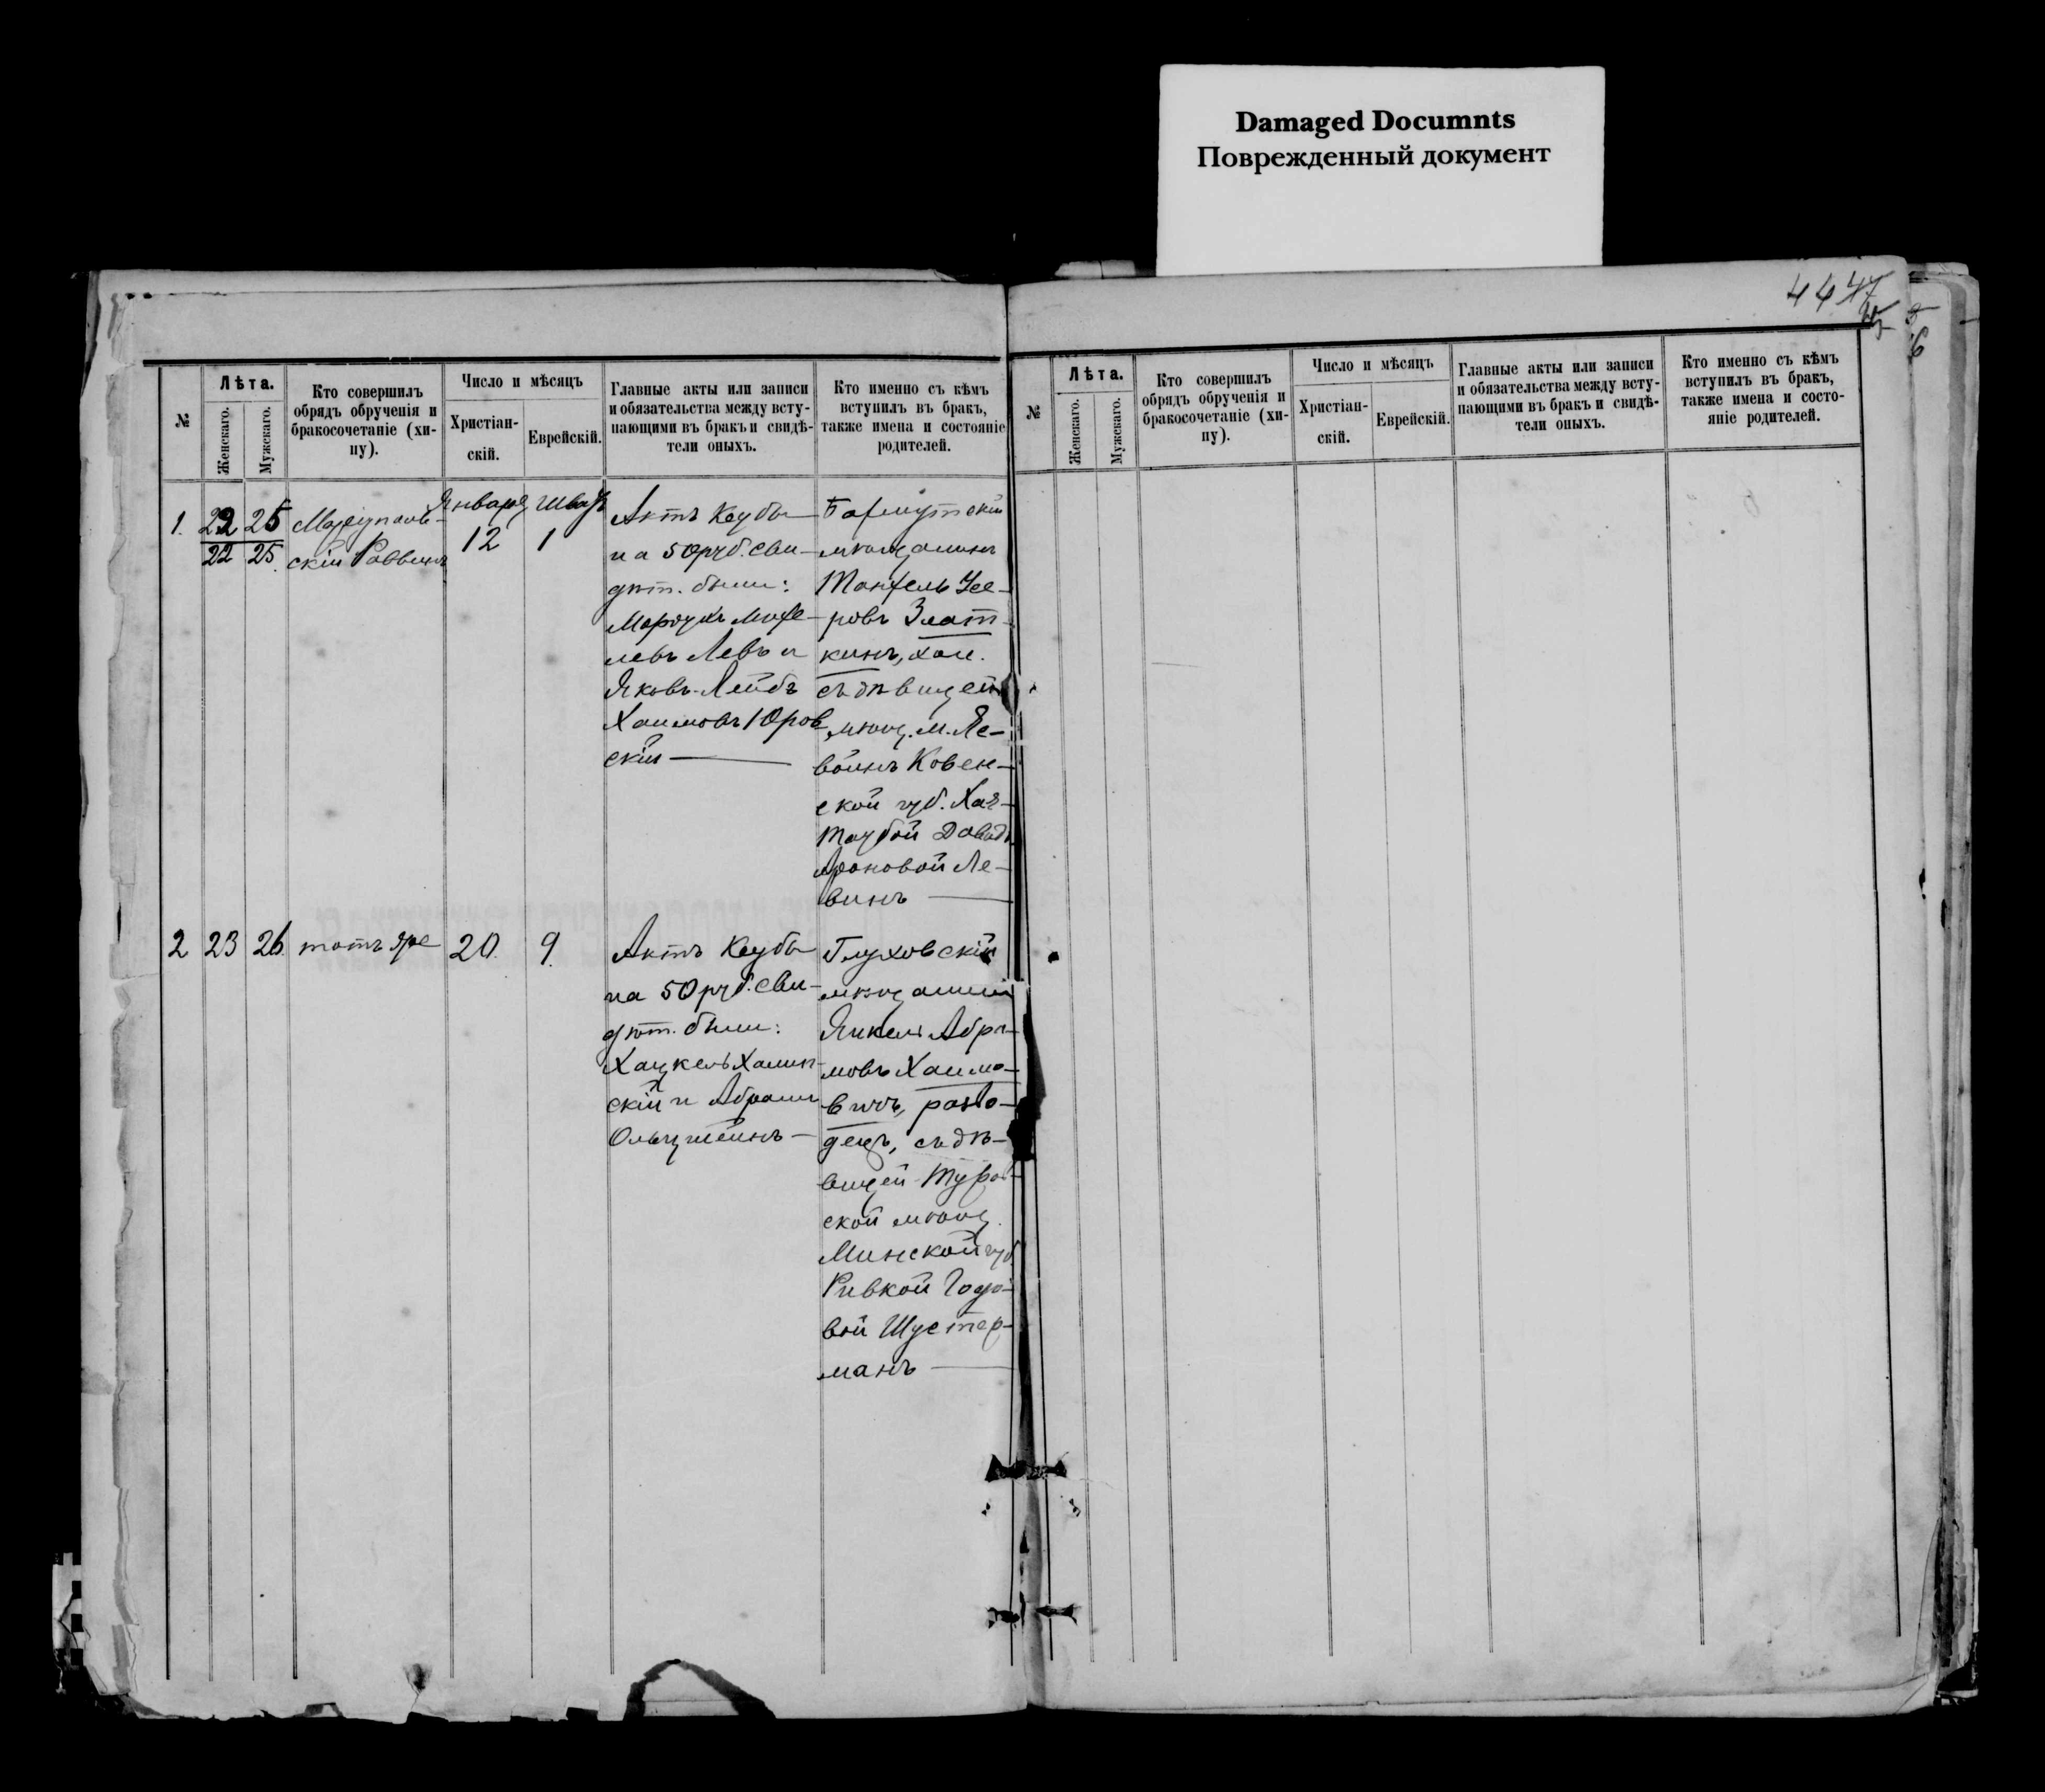 Damaged Documnts
Поврежденный документ
44
47
№
Лѣта.
Женскаго.
Мужскаго.
Кто совершилъ
обрядъ обрученія и
бракосочетаніе (хи-
пу).
Число и мѣсяцъ
Христіан-
скій.
Еврейскій.
Главные акты или записи
и обязательства между всту-
пающими въ бракъ и свидѣ-
тели оныхъ.
Кто именно съ кѣмъ
вступилъ въ бракъ,
также имена и состояніе
родителей.
1.
22
22
25
25
скій Раввинъ
Января
12
Шват
1
Актъ Кеубы
на 50 руб. сви-
дѣт. были:
левъ Левъ и
Яковъ-Лейбъ
Хаимовъ Юров
скій
мѣщанинъ
ровъ Злат-
кинъ, хол.
съ дѣвицей
мѣщ. м.
Ковен-
ской губ. Хая-
Таубой Давид
Ароновой Ле-
винъ
2
23
26.
тотъ же
20.
9.
Актъ Кеубы
на 50 руб. сви-
дѣт. были:
Хацкель
скій и Абрамъ
Глуховскій
мѣщанинъ
Янкель Абра-
мовъ Хаимо-
вичъ, разво-
децъ, съ дѣ-
вицей Туров-
ской мѣщ.
Минской губ.
Ривкой
вой Шустер-
манъ
№
Лѣта.
Женскаго.
Мужскаго.
Кто совершилъ
обрядъ обрученія и
бракосочетаніе (хи-
пу).
Число и мѣсяцъ
Христіан-
скій.
Еврейскій.
Главные акты или записи
и обязательства между всту-
пающими въ бракъ и свидѣ-
тели оныхъ.
Кто именно съ кѣмъ
вступилъ въ бракъ,
также имена и состо-
яніе родителей.